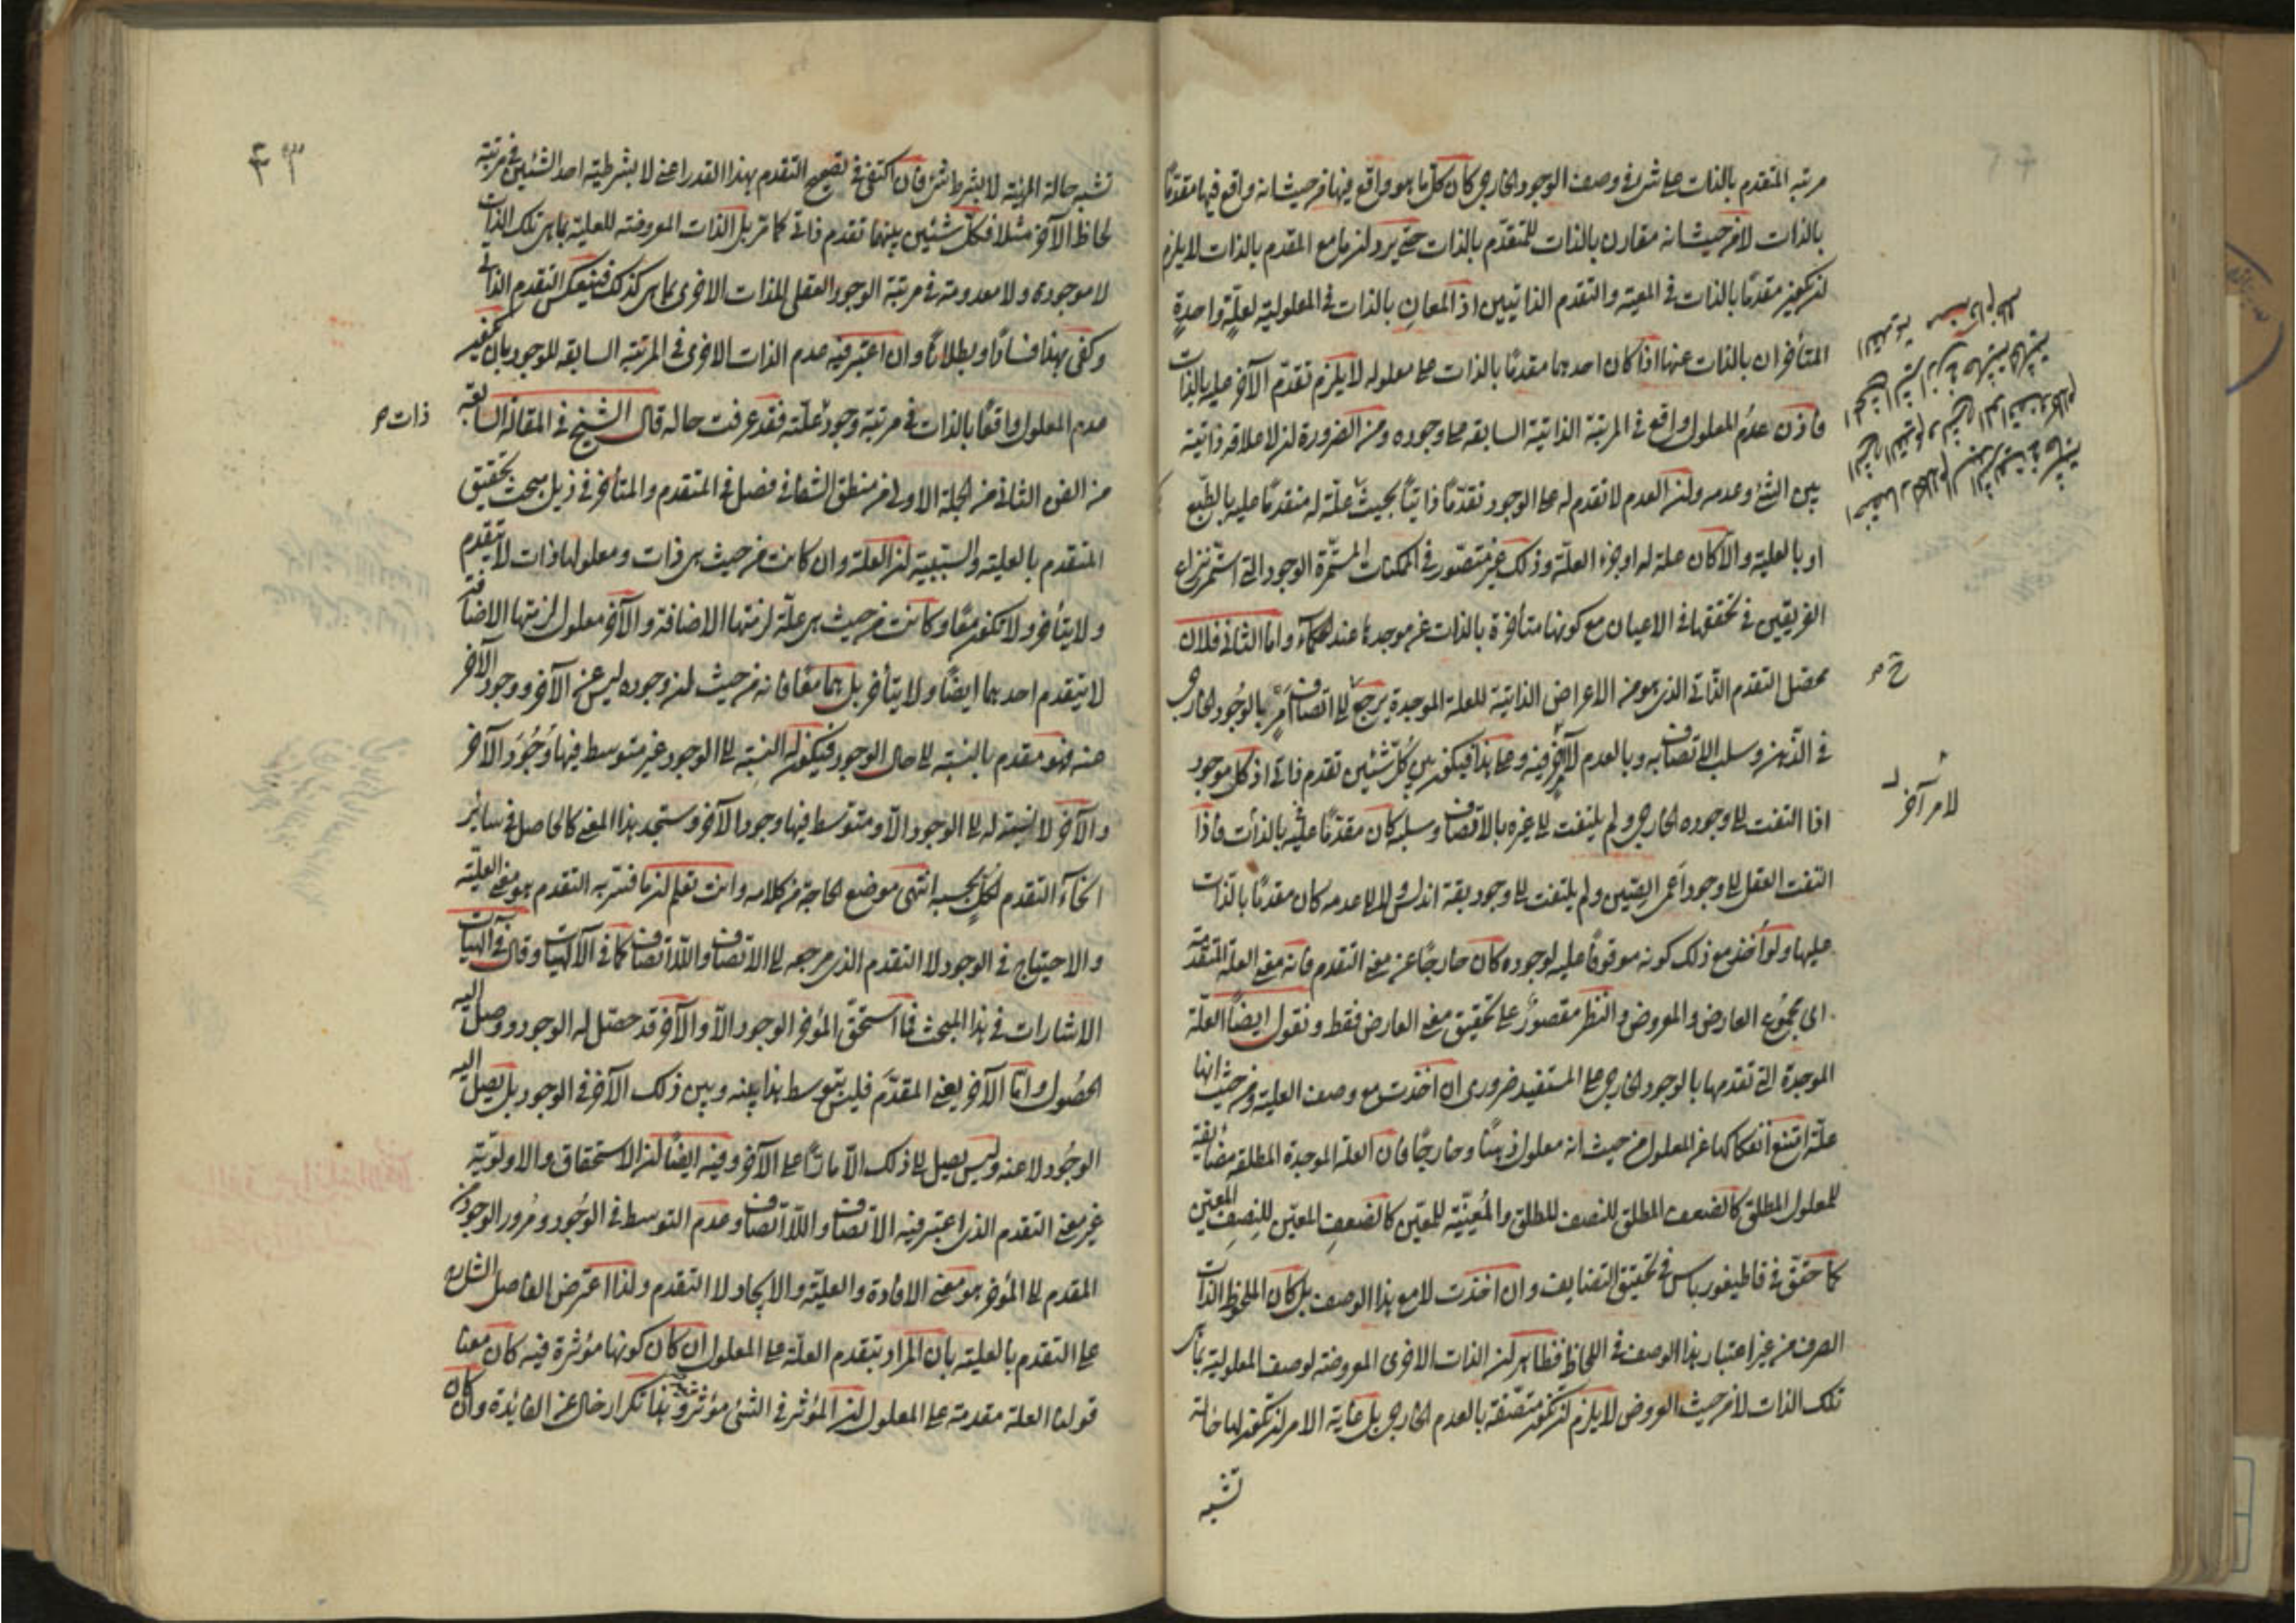 مرتبه المتقدم بالذات على شئ في وصف الوجود الخارجي كان كل ما هو واقع فيها من حيث انه واقع فيها مقدما
بالذات لا من حيث انه مقارن بالذات للمتقدم بالذات حتى يرد ان ما مع المقدم بالذات لا يلزم
ان يكون مقدما بالذات في المعية والتقدم الذاتيين اذ المعان بالذات في المعلولية لعلة واحدة
المتأخران بالذات عنها اذا كان احدهما مقدما بالذات على معلوله لا يلزم تقدم الآخر عليه بالذات
فاذن عدم المعلول واقع في المرتبة الذاتية السابقه على وجوده ومن الضرورة ان لا علاقه ذاتية
بين الشئ وعدمه وان العدم لا تقدم له على الوجود تقدما ذاتيا بحيث علة له متقدما عليه بالطبع
او بالعلية والا كان علة له او جزء العلة وذلك غير متصور في الممكنات المستمرة الوجود التي استمر نزاع
الفريقين في تحققها في الاعيان مع كونها متأخرة بالذات عن موجدها عند الحكماء واما الثاني فلان
محصل التقدم الذاتي الذي هو من الاعراض الذاتية للعلة الموجدة يرجع الى اتصاف امر بالوجود الخارجي
في الذهن وسلب الاتصاف به وبالعدم لآخر فيه وعلى هذا فيكون بين كل شئين تقدم ذاتي اذ كل موجود
اذا التفت الى وجوده الخارجي ولم يلتفت الى غيره بالاتصاف وسلبه كان مقدما عليه بالذات فاذا
التفت العقل الى وجود اعمى الصين ولم يلتفت الى وجود بقة اندلس ولا الى عدمه كان مقدما بالذات
عليها ولو أخذ مع ذلك كونه موقوفا عليه لوجوده كان خارجا عن معنى التقدم فانه معنى العلة المتقدمة
اى مجموع العارض والمعروض والنظر مقصور على تحقيق معنى العارض فقط ونقول ايضا العلة
الموجدة التي تقدمها بالوجود الخارجي على المستفيد ضروري ان اخذت مع وصف العلية ومن حيث انها
علة امتنع انفكاكها عن المعلول من حيث انه معلول ذهنا وخارجا فان العلة الموجدة المطلقه مضايفة
للمعلول المطلق كالضعف المطلق للنصف المطلق والمعينة للمعين كالضعف المعين للنصف المعين
كما حقق في قاطيغورياس في تحقيق التضايف وان اخذت لا مع هذا الوصف بل كان الملحوظ الذات
الصرف من غير اعتبار هذا الوصف في اللحاظ فظاهر ان الذات الاخرى المعروضة لوصف المعلولية بما هي
تلك الذات لا من حيث العروض لا يلزم ان تكون متصفة بالعدم الخارجي بل غاية الامر ان تكون لها حالة
تشبه
ح ص
لامر آخر
٣٣
تشبه حالة المهية لا بشرط شئ فان اكتفى في تصحيح التقدم بهذا القدر اعنى لا بشرطية احد الشئين في مرتبة
لحاظ الآخر مثلا فكل شئين بينهما تقدم ذاتي كما تر بل الذات المعروضة للعلية بما هي تلك الذات
لا موجودة ولا معدومة في مرتبة الوجود العقلي للذات الاخرى بما هي كذلك فينعكس التقدم الذاتي
وكفى بهذا فسادا وبطلانا وان اعتبر فيه عدم الذات الاخرى في المرتبة السابقه للوجود بان يعتبر
عدم المعلول واقعا بالذات في مرتبة وجود علته فقد عرفت حاله قال الشيخ في المقالة السابعة
من الفن الثاني من الجملة الاولى من منطق الشفا في فصل في المتقدم والمتأخر في ذيل مبحث تحقيق
المتقدم بالعلية والسببية ان العلة وان كانت من حيث هي ذات ومعلولها ذات لا يتقدم
ولا يتأخر ولا تكون معا وكانت من حيث هي علة لزمتها الاضافة والآخر معلول لزمتها الاضافة
لا يتقدم احدهما ايضا ولا يتأخر بل هما معا فانه من حيث ان وجوده ليس عن الآخر ووجود الآخر
عنه فهو مقدم بالنسبة الى حال الوجود فيكون له النسبة الى الوجود غير متوسط فيها وجود الآخر
والآخر لا نسبة له الى الوجود الا ومتوسط فيها وجود الآخر وستجد هذا المعنى كالحاصل في ساير
انحاء التقدم لكل بحسبه انتهى موضع الحاجة من كلامه وانت تعلم ان ما فسر به التقدم هو معنى العلية
والاحتياج في الوجود لا التقدم الذي مرجعه الى الاتصاف واللااتصاف كما في الآلهيات وقال في الهيات
الاشارات في هذا المبحث فما استحق المؤخر الوجود الا والآخر قد حصل له الوجود ووصل اليه
الحصول واما الآخر يعنى المقدم فليس يتوسط هذا بينه وبين ذلك الآخر في الوجود بل يصل اليه
الوجود لا عنه وليس يصل الى ذلك الا مارا على الآخر وفيه ايضا ان الاستحقاق والاولوية
غير معنى التقدم الذي اعتبر فيه الاتصاف واللااتصاف وعدم التوسط في الوجود ومرور الوجود من
المقدم الى المؤخر هو معنى الافادة والعلية والايجاد لا التقدم ولذا اعترض الفاضل الشارح
على التقدم بالعلية بان المراد بتقدم العلة على المعلول ان كان كونها مؤثرة فيه كان معنا
قولنا العلة مقدمة على المعلول ان المؤثر في الشئ مؤثر فيه وهذا تكرار خال عن الفايدة وان كان
ذات ص